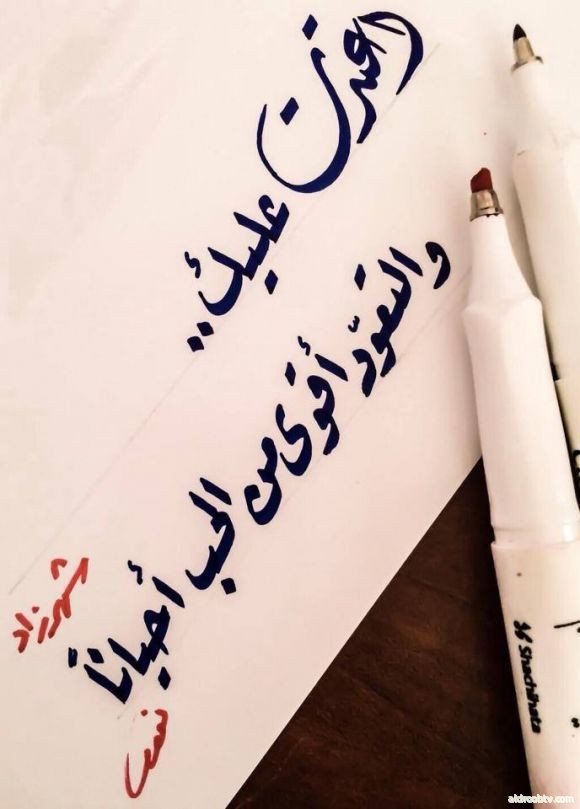 اعتدت عليك ..
والتعوّد أقوى من الحب أحياناً
شهرزاد
Shachihata
aldroobtv.com